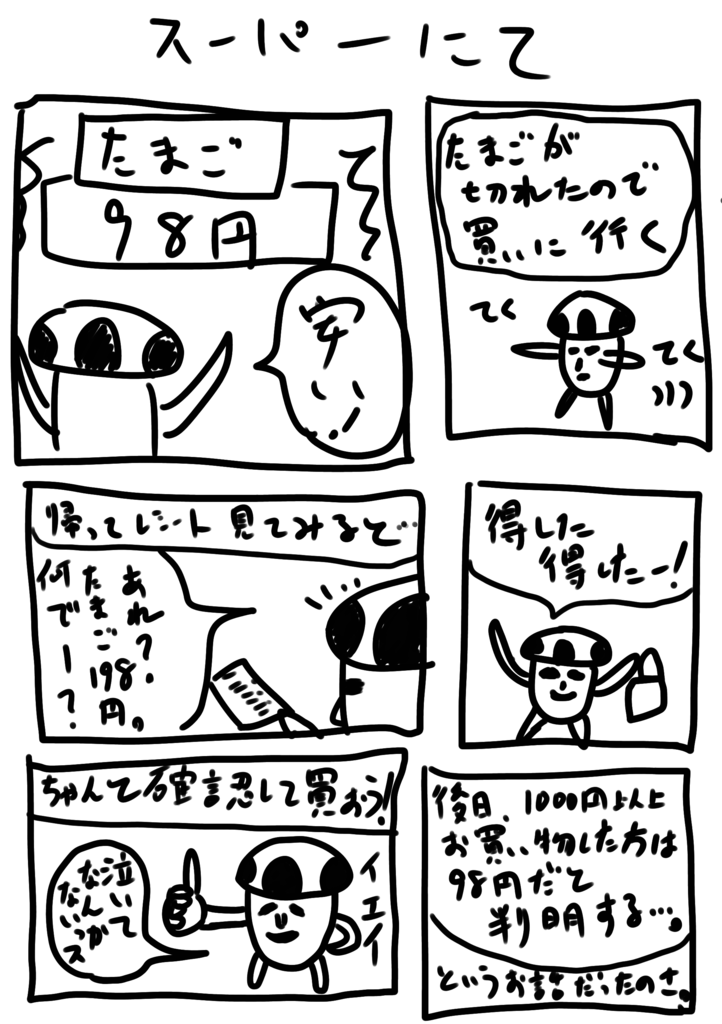 スーパーにて
たまごが
切れたので
買いに行く
てく
てく
たまご
98円
安い!
得した
得したー!
帰ってレシート見てみると…
あれ?
たまご198円。
何でー?
後日、1000円以上
お買い物した方は
98円だと
判明する…。
というお話だったのさ。
ちゃんと確認して買おう!
イエイ
泣いて
なんか
ないっス